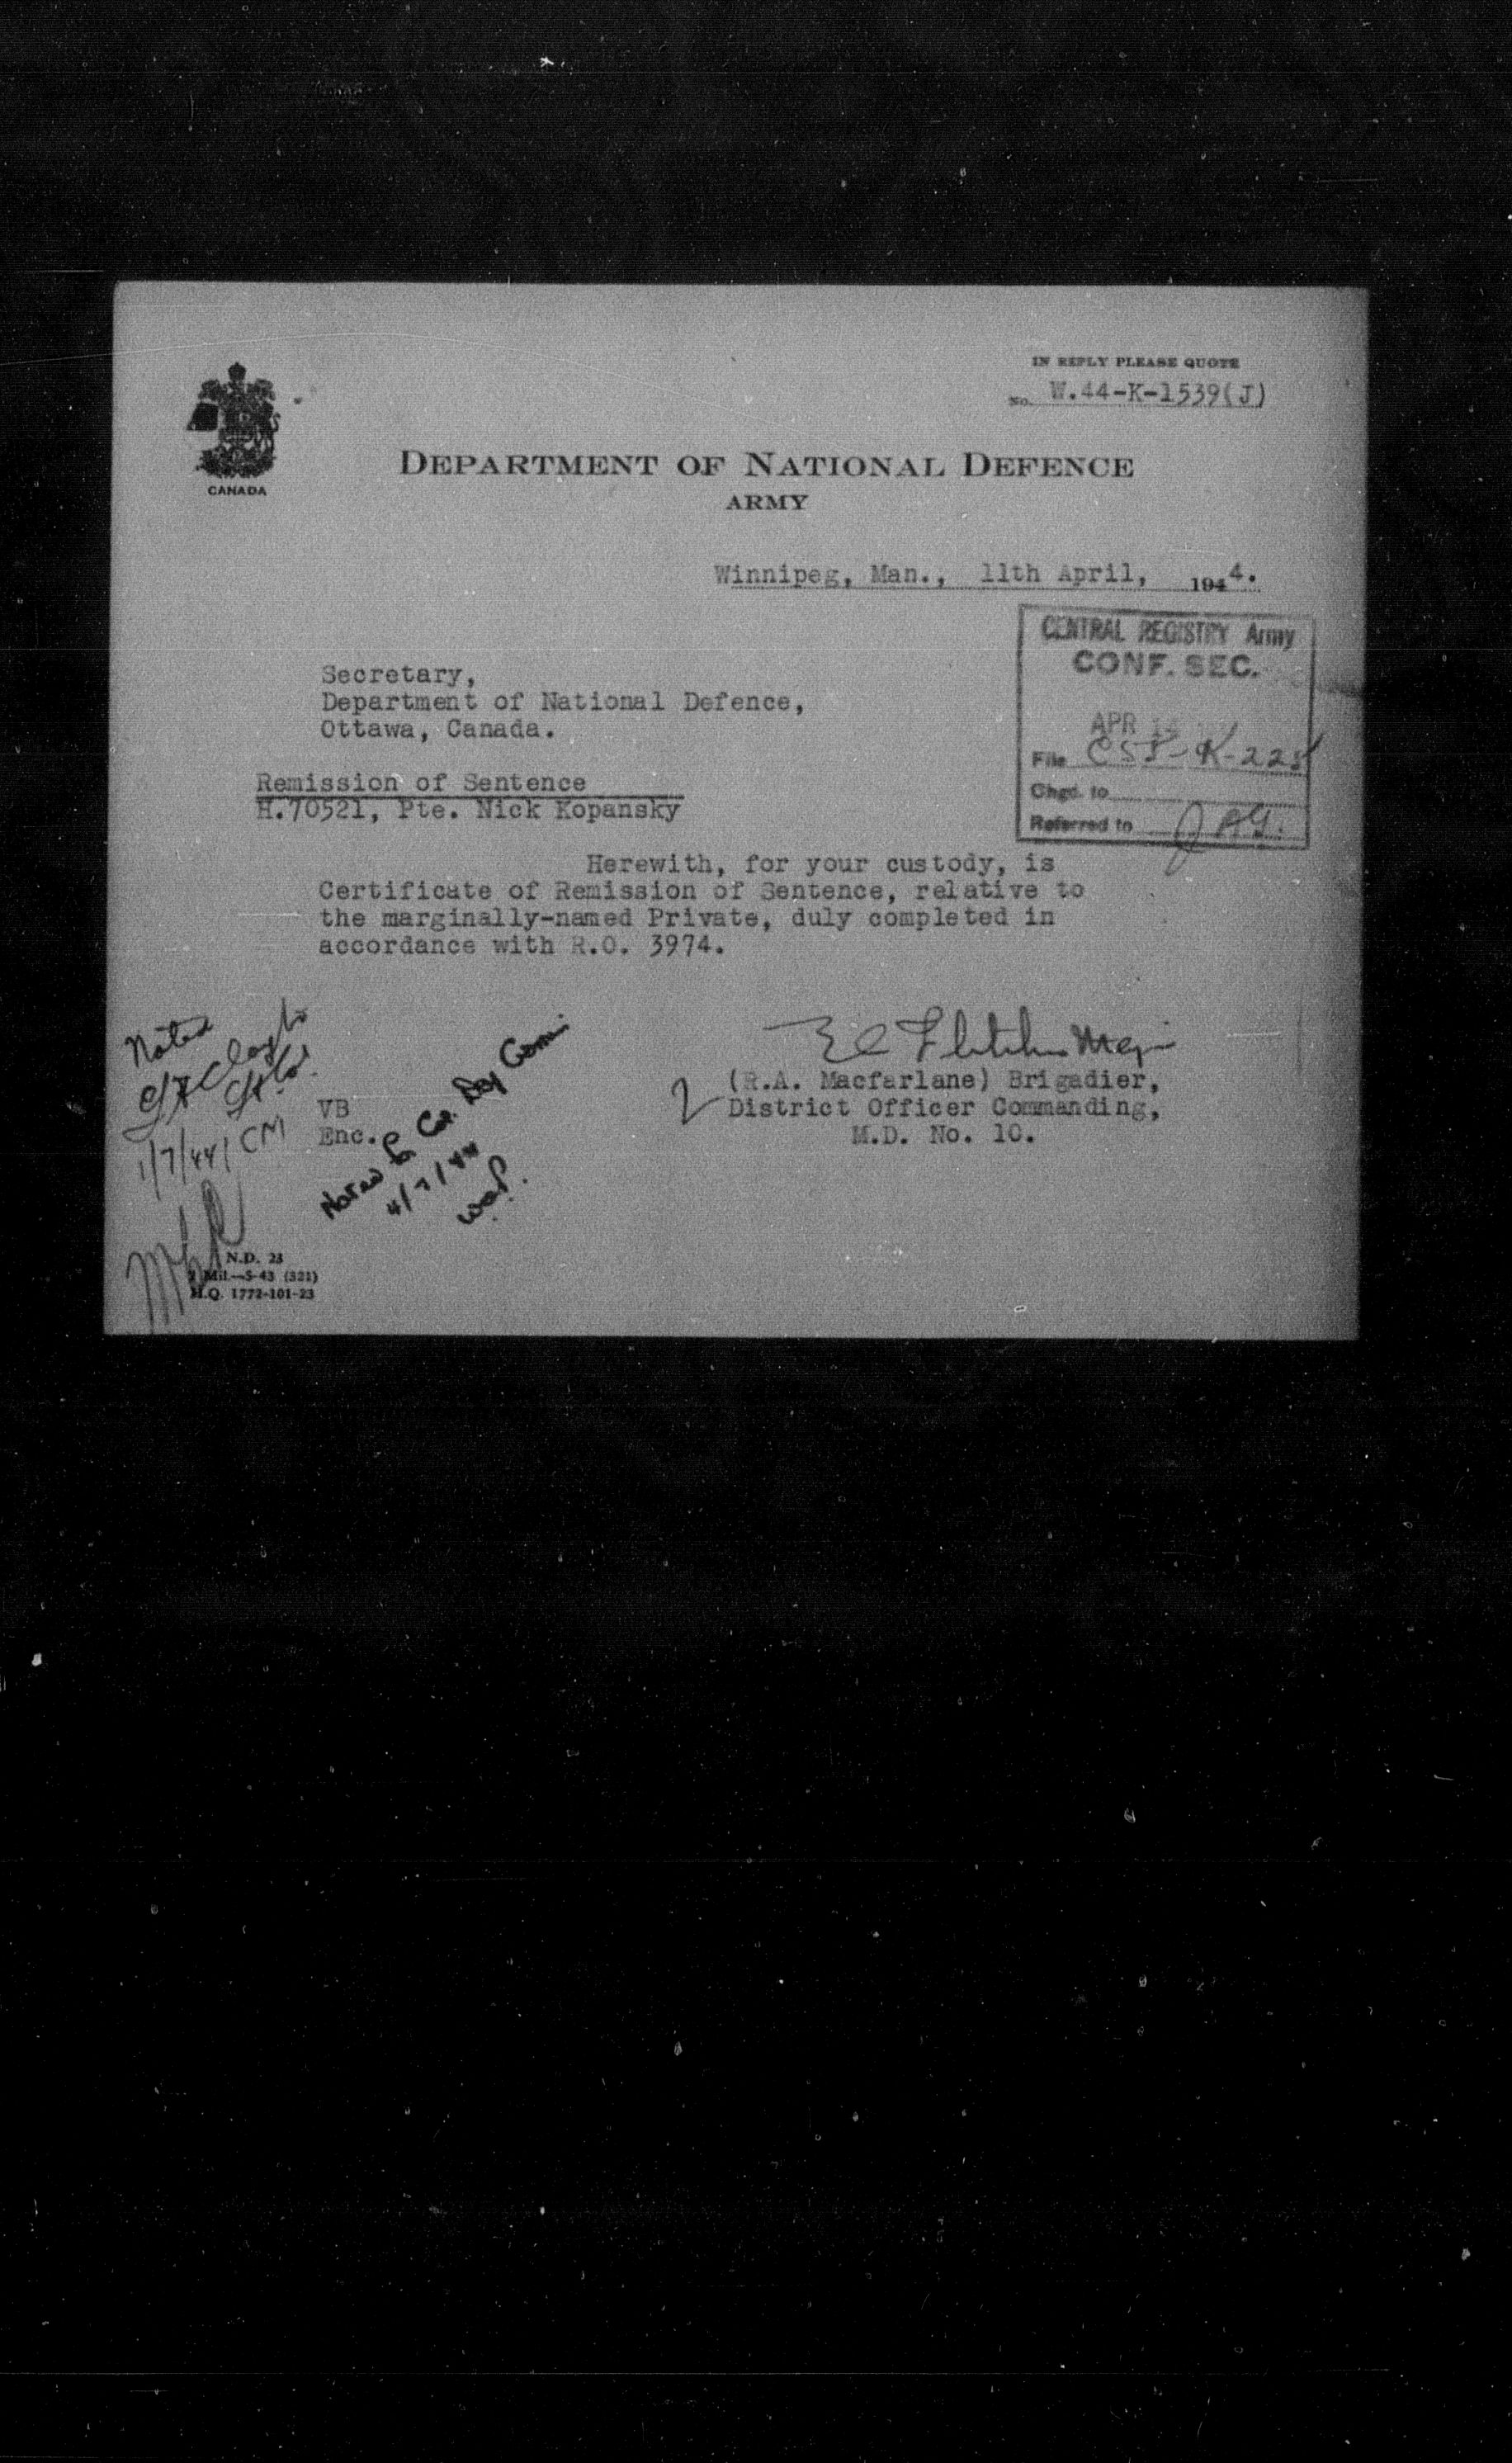 IN REPLY PLEASE QUOTE
No. W.44-K-1539(J)
CANADA
DEPARTMENT OF NATIONAL DEFENCE
ARMY
Winnipeg, Man., 11th April, 1944.
CENTRAL REGISTRY Army
CONF. SEC.
APR 14
File CSJ-K-225
Chgd. to
Referred to JAG.
Secretary,
Department of National Defence,
Ottawa, Canada.
Remission of Sentence
H.70521, Pte. Nick Kopansky
Herewith, for your custody, is
Certificate of Remission of Sentence, relative to
the marginally-named Private, duly completed in
accordance with R.O. 3974.
Noted
1/7/44 CM
Fletcher Maj
(R.A. Macfarlane) Brigadier,
District Officer Commanding,
M.D. No. 10.
VB
Enc.
4/7/44
N.D. 23
Mil.—5-43 (321)
H.Q. 1772-101-23